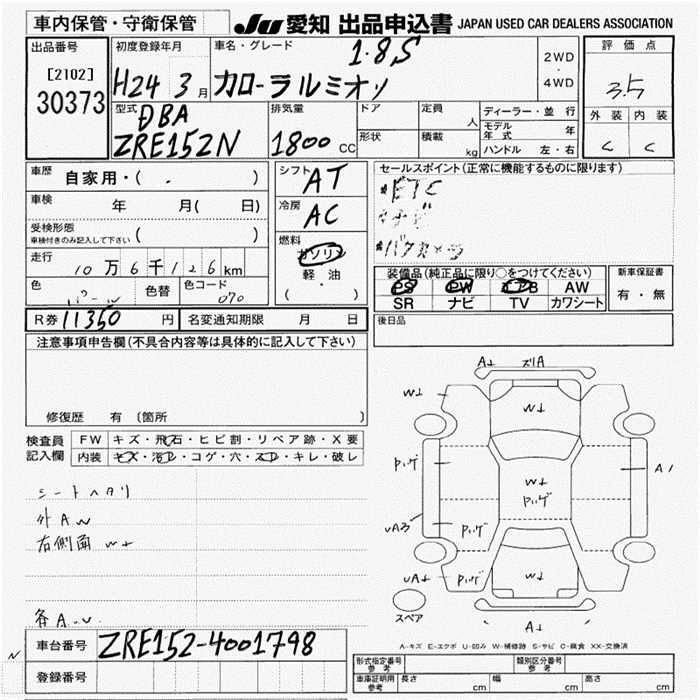 車内保管・守衛保管 JU 愛知 出品申込書 JAPAN USED CAR DEALERS ASSOCIATION
出品番号 [2102] 30373
初度登録年月 H24 3月
車名・グレード 1.8S カローラルミオン
2WD・4WD
評価点 3.5
外装 内装
C C
型式 DBA ZRE152N
排気量 1800 CC
ドア 定員 人
形状 積載 kg
ディーラー・並行
モデル年式 年
ハンドル 左・右
車歴 自家用・( )
車検 年 月( 日)
受検形態 ( )
車検付きのみ記入して下さい
走行 10万6千126km
色 色替 色コード 070
R券 11350 円 名変通知期限 月 日
シフト AT
冷房 AC
燃料 ガソリン
軽・油
(・)
セールスポイント(正常に機能するものに限ります)
*ETC
*ナビ
*バックカメラ
装備品(純正品に限り○をつけてください)
PS PW エアB AW
SR ナビ TV カワシート
新車保証書 有・無
後日品
注意事項申告欄(不具合内容等は具体的に記入して下さい)
修復歴 有 〔箇所 〕
検査員記入欄
FW キズ・飛石・ヒビ割・リペア跡・X要
内装 キズ・汚れ・コゲ・穴・スレ・キレ・破レ
シートヘタリ
外AW
右側面W±
各A・U
A± ズリA
W±
W±
Pリゲ
A1
W±
Pリゲ
UA3
Pリゲ
UA± Pリゲ
W±
スペア
A±
A-キズ E-エクボ U-凹み W-補修跡 S-サビ C-腐食 XX-交換済
車台番号 ZRE152-4001798
登録番号
形式指定番号 参考 類別区分番号 参考
車庫証明用 参考 長さ cm 幅 cm 高さ cm